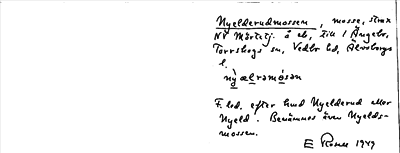 Nyelderudmossen, mosse, strax
NV Mårtetj. å eb, till 1 Ängebr,
Torrskogs sn, Vedbo hd, Älvsborgs
l.
nỳ æl rəmósən
F. led. efter hmd Nyelderud eller
Nyeld. Benämnes även Nyelds-
mossen.
E Rosell 1949